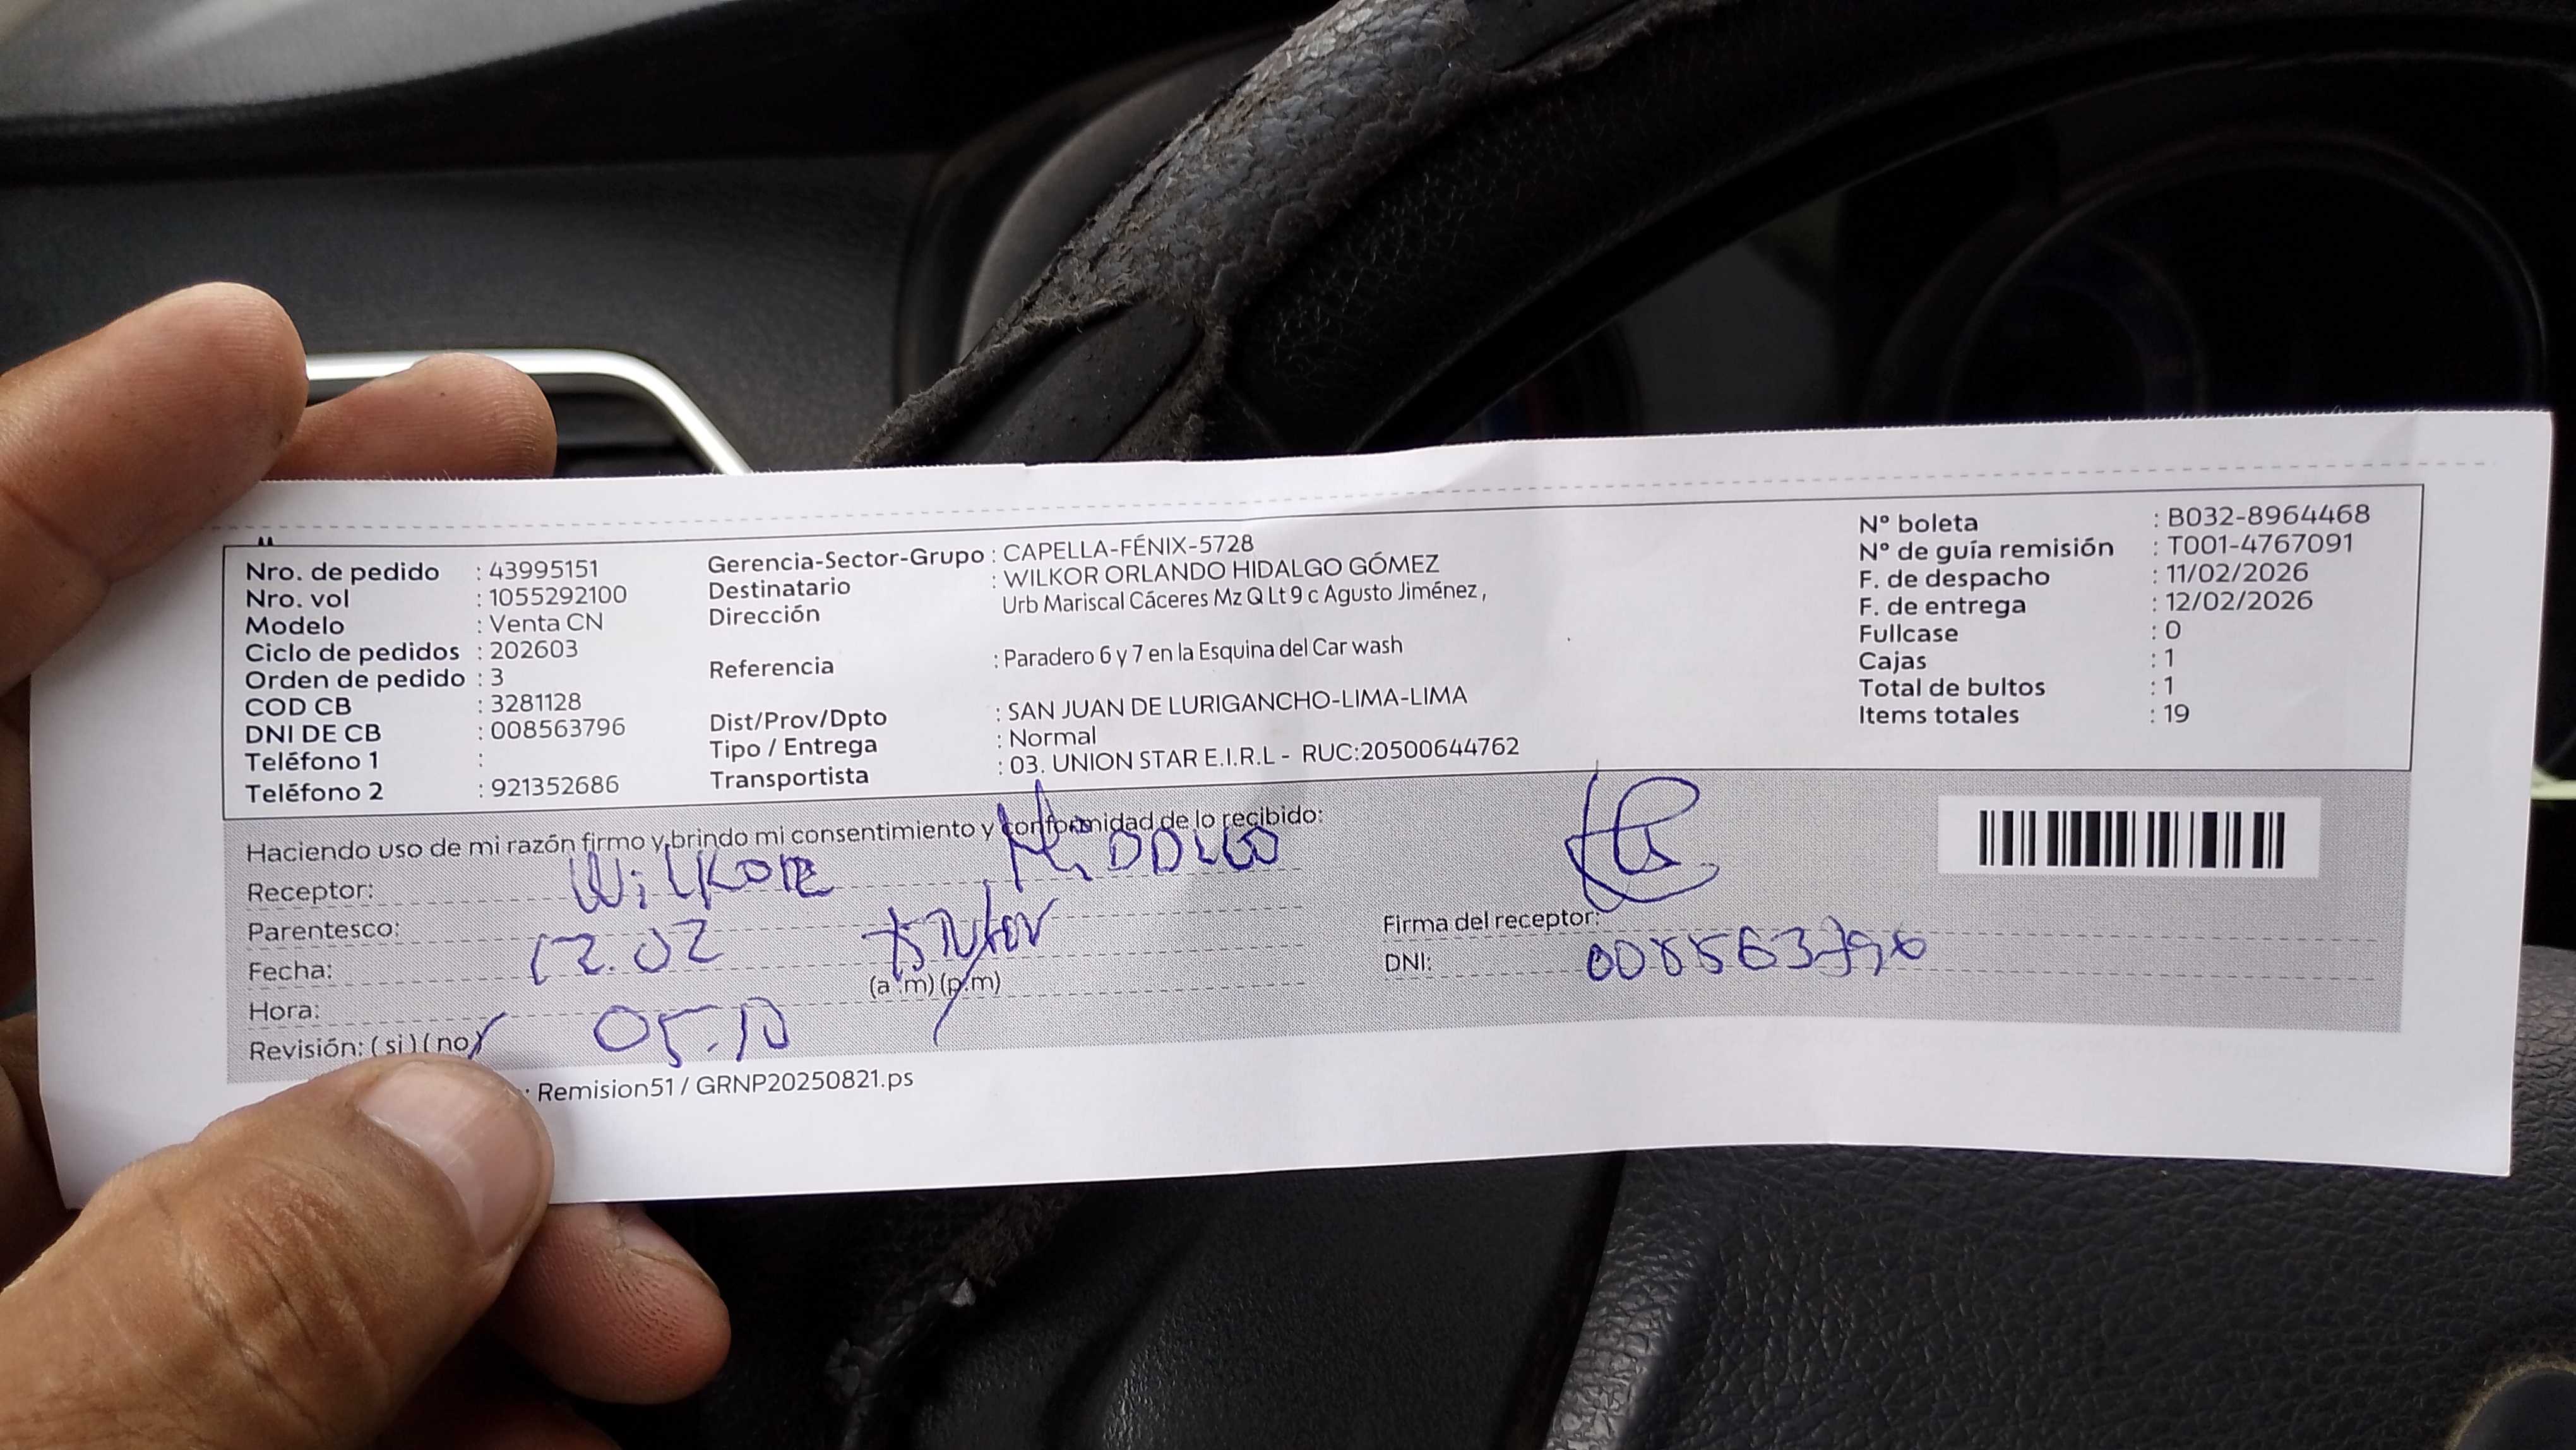 Nro. de pedido : 43995151
Nro. vol : 1055292100
Modelo : Venta CN
Ciclo de pedidos : 202603
Orden de pedido : 3
COD CB : 3281128
DNI DE CB : 008563796
Teléfono 1 :
Teléfono 2 : 921352686
Gerencia-Sector-Grupo : CAPELLA-FÉNIX-5728
Destinatario : WILKOR ORLANDO HIDALGO GÓMEZ
Dirección Urb Mariscal Cáceres Mz Q Lt 9 c Agusto Jiménez ,
Referencia : Paradero 6 y 7 en la Esquina del Car wash
Dist/Prov/Dpto : SAN JUAN DE LURIGANCHO-LIMA-LIMA
Tipo / Entrega : Normal
Transportista : 03. UNION STAR E.I.R.L - RUC:20500644762
N° boleta : B032-8964468
N° de guía remisión : T001-4767091
F. de despacho : 11/02/2026
F. de entrega : 12/02/2026
Fullcase : 0
Cajas : 1
Total de bultos : 1
Items totales : 19
Haciendo uso de mi razón firmo y brindo mi consentimiento y conformidad de lo recibido:
Receptor: Wilkor
Parentesco:
Fecha: 12.02
(a .m) (p.m)
Hora: 05.10
Revisión: ( si ) ( no )
Firma del receptor:
DNI: 008563796
: Remision51 / GRNP20250821.ps